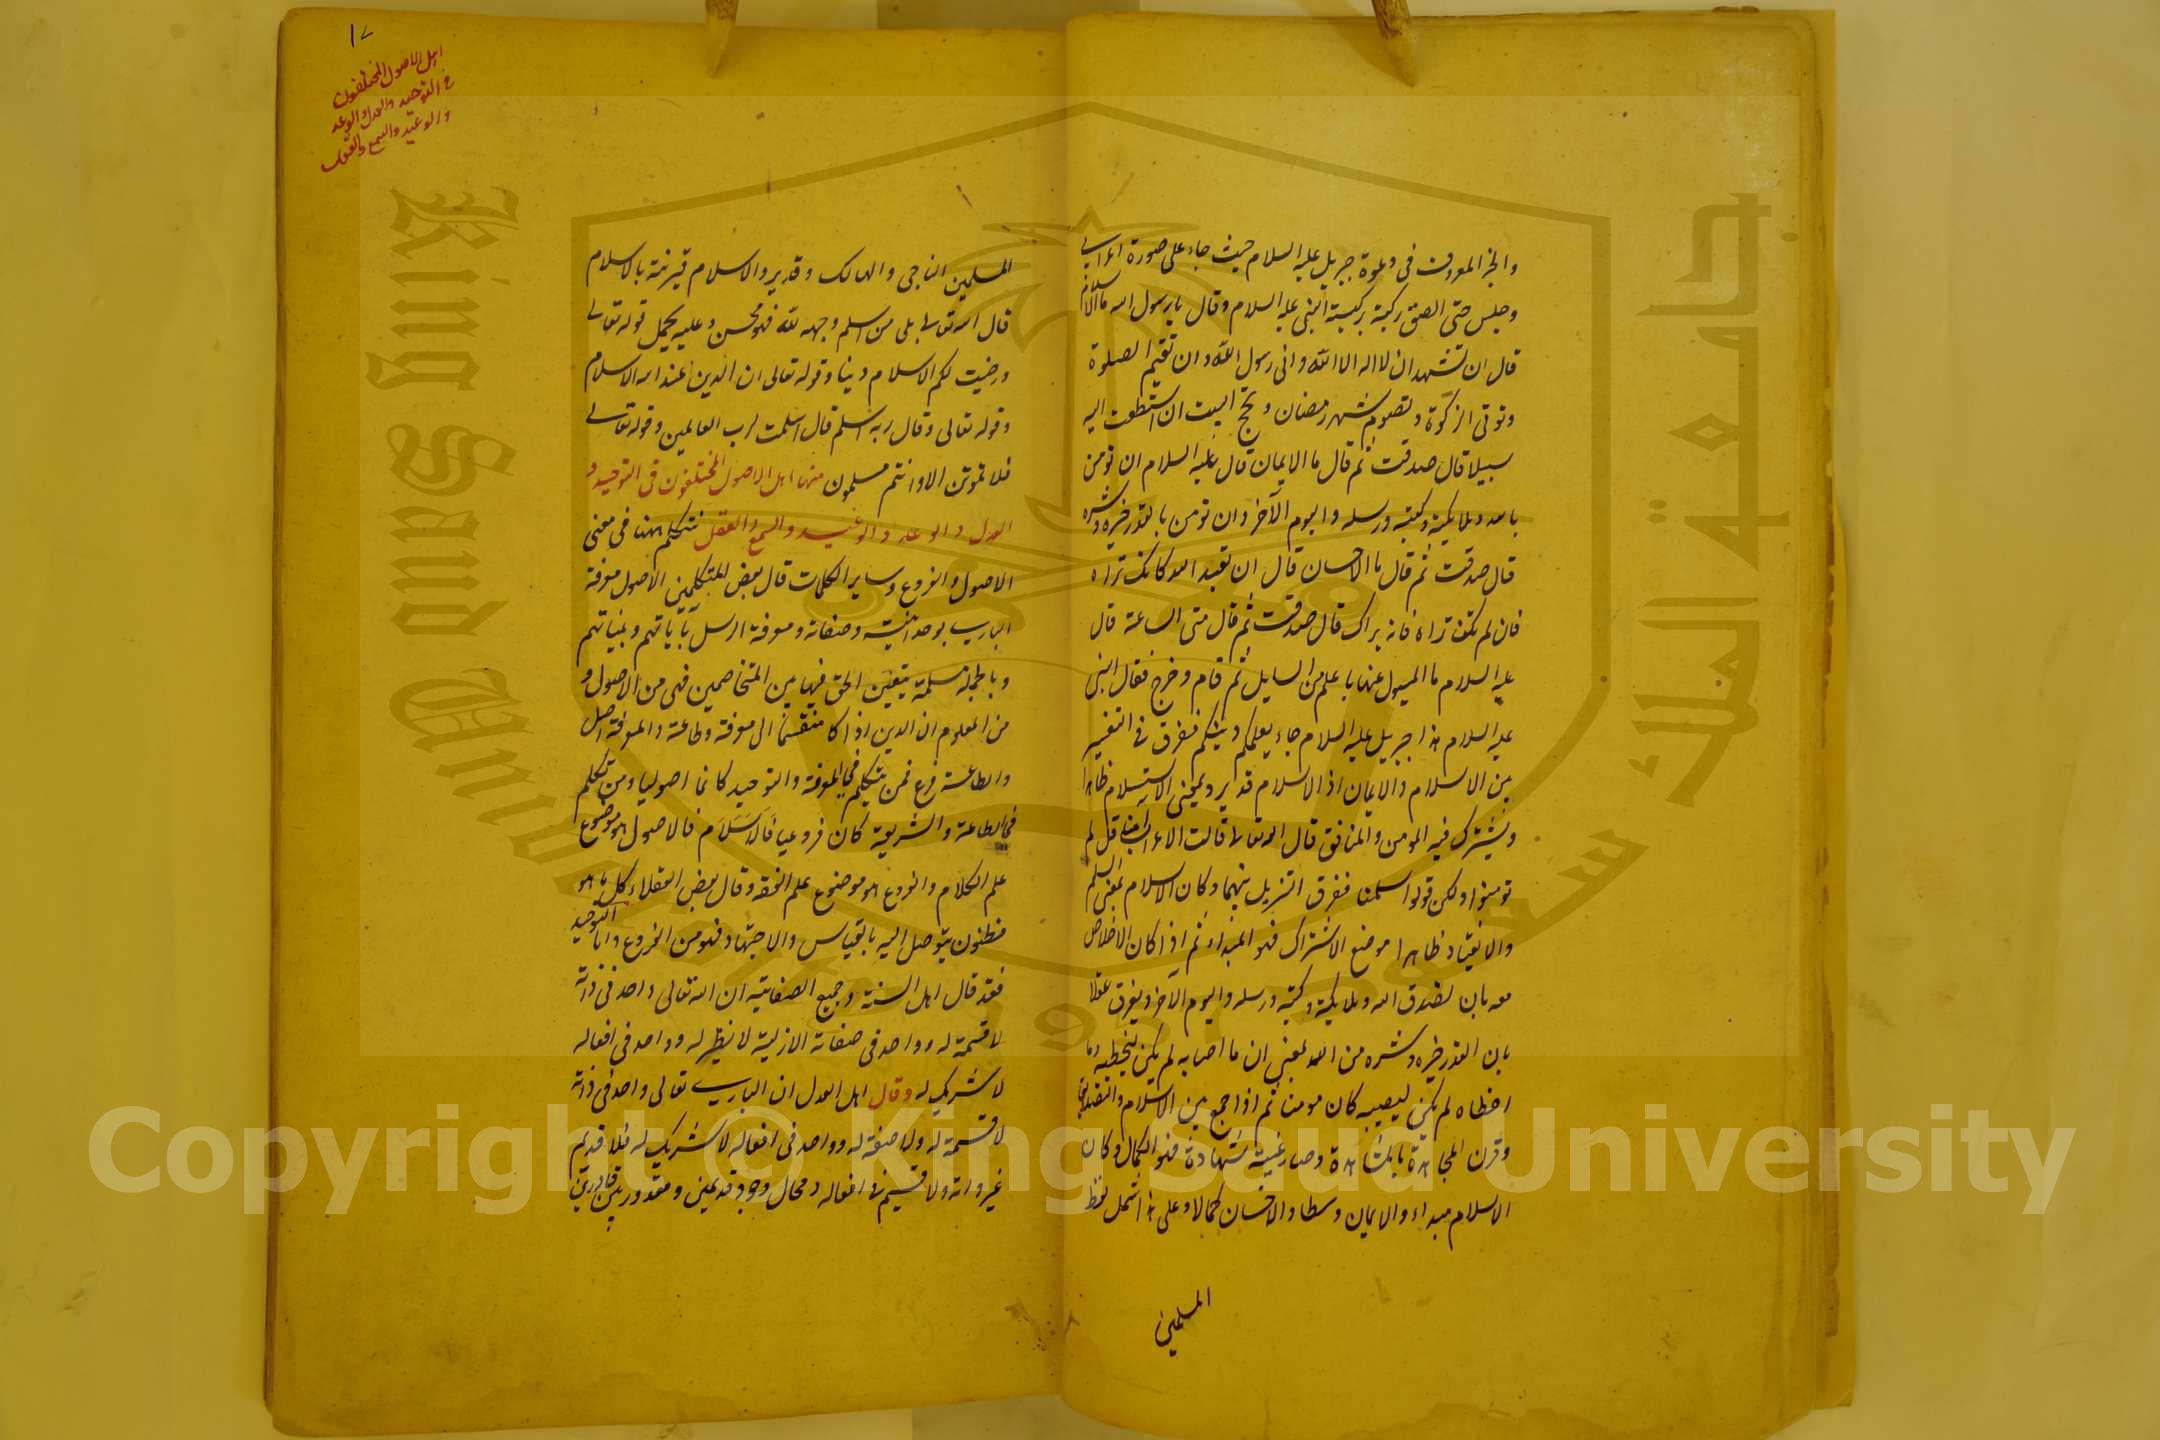 والخبر المعروف في دعوة جبريل عليه السلام حيث جاء على صورة اعرابي
وجلس حتى الصق ركبته بركبته النبي عليه السلام وقال يا رسول الله ما الاسلام
قال ان تشهد ان لا اله الا الله واني رسول الله وان تقيم الصلوة
وتوتي الزكوة وتصوم شهر رمضان وتحج البيت ان استطعت اليه
سبيلا قال صدقت ثم قال ما الايمان قال عليه السلام ان تومن
بالله وملايكته وكتبه ورسله واليوم الآخر وان تومن بالقدر خيره وشره
قال صدقت ثم قال ما الاحسان قال ان تعبد الله كانك تراه
فان لم تكن تراه فانه يراك قال صدقت ثم قال متى الساعة قال
عليه السلام ما المسول عنها باعلم من السايل ثم قام وخرج فقال النبي
عليه السلام هذا جبريل عليه السلام جاء يعلمكم دينكم ففرق في التفسير
بين الاسلام والايمان اذ الاسلام قد يرد بمعنى الاستسلام ظاهرا
ويشترك فيه المومن والمنافق قال الله تعالى قالت الاعراب امنا قل لم
تومنوا ولكن قولوا اسلمنا ففرق التنزيل بينهما وكان الاسلام بمعنى التسليم
والانقياد ظاهرا موضع الاشتراك فهو المبداء ثم اذا كان الاخلاص
معه بان يصدق الله وملايكته وكتبه ورسله واليوم الاخر ويقرن عقلا
بان القدر خيره وشره من الله بمعنى ان ما اصابه لم يكن ليخطيه وما
اخطاه لم يكن ليصيبه كان مومنا ثم اذا جمع بين الاسلام والتصديق
وقرن المجاهدة بالمشاهدة وصار غيبه شهادة فهو الكمال وكان
الاسلام مبداء والايمان وسطا والاحسان كمالا وعلى هذا اشتمل لفظ
المسلمين
١٧
اهل الاصول المختلفون
في التوحيد والعدل والوعد
والوعيد والسمع والعقل
المسلمين الناجي والهالك وقد يرد الاسلام قرينة بالاسلام
قال الله تعالى بلى من اسلم وجهه لله فهو محسن وعليه يحمل قوله تعالى
ورضيت لكم الاسلام دينا وقوله تعالى ان الدين عند الله الاسلام
وقوله تعالى وقال ربه اسلم قال اسلمت لرب العالمين وقوله تعالى
فلا تموتن الا وانتم مسلمون منها اهل الاصول المختلفون في التوحيد و
العدل والوعد والوعيد والسمع والعقل نتكلم ههنا في معنى
الاصول والفروع وساير الكلمات قال بعض المتكلمين الاصول معرفة
الباري بوحدانيته وصفاته ومعرفة الرسل بآياتهم وبيناتهم
وبالجملة مسلمة يتعين الحق فيها بين المتخاصمين فهي من الاصول و
من المعلوم ان الدين اذا كا منقسما الى معرفة وطاعة والمعرفة اصل
والطاعة فرع فمن يتكلم في المعرفة والتوحيد كانما اصوليا ومن تكلم
في الطاعة والشريعة كان فروعيا فالاسلام فالاصول هو موضوع
علم الكلام والفروع هو موضوع علم الفقه وقال بعض العقلاء كل ما هو
مظنون يتوصل اليه بالقياس والاجتهاد فهو من الفروع واما التوحيد
فقد قال اهل السنة وجميع الصفاتية ان الله تعالى واحد في ذاته
لا قسمة له وواحد في صفاته الازلية لا نظير له وواحد في افعاله
لا شريك له وقال اهل العدل ان الباري تعالى واحد في ذاته
لا قسمة له ولا صفة له وواحد في افعاله لا شريك له فلا قديم
غير ذاته ولا قسيم في افعاله ومحال وجود قديمين ومقدور بين قادرين
Copyright © King Saud University
King Saud University
جامعة الملك سعود
1957